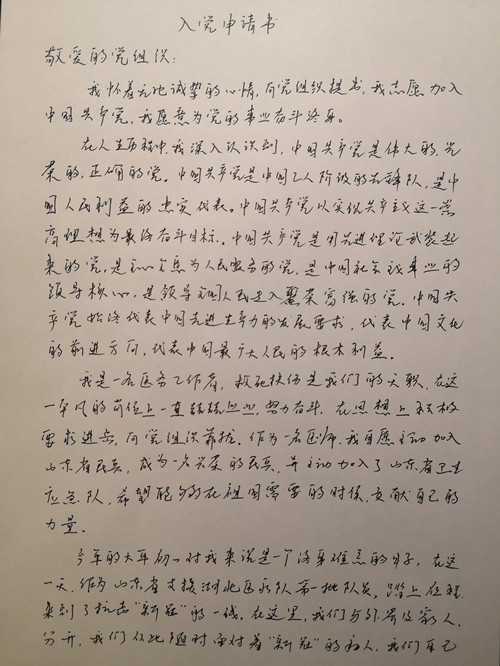 入党申请书
敬爱的党组织:
我怀着无比诚挚的心情,向党组织提出,我志愿加入
中国共产党,我愿意为党的事业奋斗终身。
在人生历程中,我深入认识到,中国共产党是伟大的,光
荣的,正确的党。中国共产党是中国工人阶级的先锋队,是中
国人民利益的忠实代表。中国共产党以实现共产主义这一崇
高理想为最终奋斗目标。中国共产党是用先进理论武装起
来的党,是全心全意为人民服务的党,是中国社会主义事业的
领导核心,是领导全国人民走入繁荣富强的党。中国共
产党始终代表中国先进生产力的发展要求,代表中国文化
的前进方向,代表中国最广大人民的根本利益。
我是一名医务工作者,救死扶伤是我们的天职,在这
一平凡的岗位上一直兢兢业业,努力奋斗,在思想上积极
要求进步,向党组织靠拢。作为一名医师,我自愿主动加入
山东省民兵,成为一名光荣的民兵,并主动加入了山东省卫生
应急队,希望能够在祖国需要的时候,贡献自己的
力量。
今年的大年初一对我来说是一个终身难忘的日子,在这
一天,作为山东省支援湖北医疗队第一批队员,踏上征程,
来到了抗击“新冠”的一线。在这里,我们与外界及家人
分开,我们从此随时面对着“新冠”的病人,我们自己